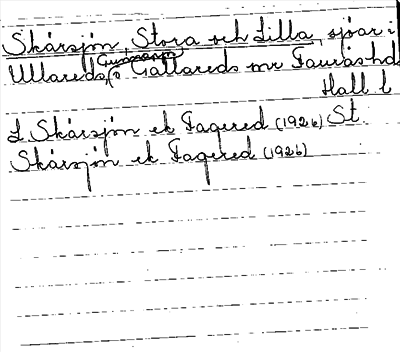 Skärsjön, Stora och Lilla, sjöar i
Ullareds, Gunnarps o Gällareds snr Faurås hd
Hall l
L Skärsjön ek Fagered (1926) St.
Skärsjön ek Fagered (1926)